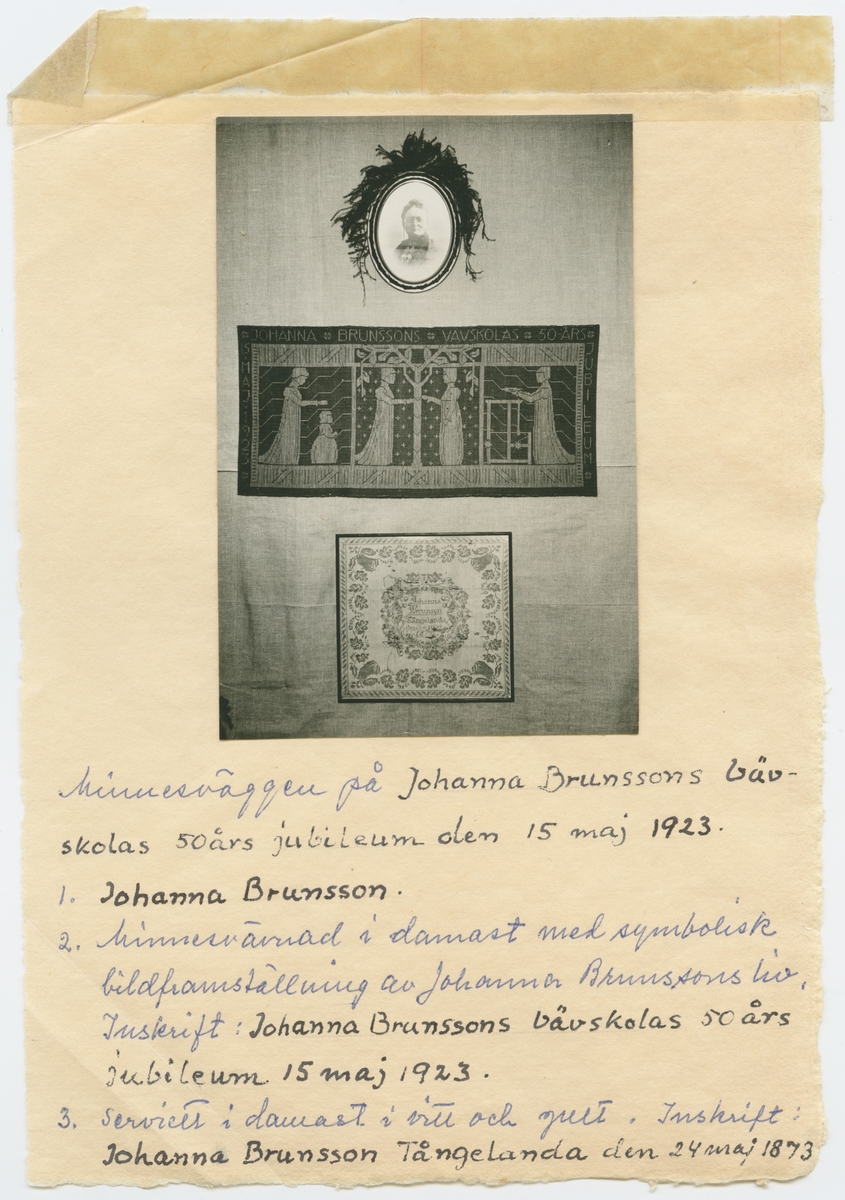 JOHANNA BRUNSSONS VÄVSKOLAS 50 ÅRS
JUBILEUM
15 MAJ 1923
Johanna
Brunsson
Tångelanda
Minnesväggen på Johanna Brunssons Väv-
skolas 50års jubileum den 15 maj 1923.
1. Johanna Brunsson.
2. Minnesvävnad i damast med symbolisk
bildframställning av Johanna Brunssons liv.
Inskrift: Johanna Brunssons Vävskolas 50 års
jubileum 15 maj 1923.
3. Serviett i damast i vitt och gult. Inskrift:
Johanna Brunsson Tångelanda den 24 maj 1873